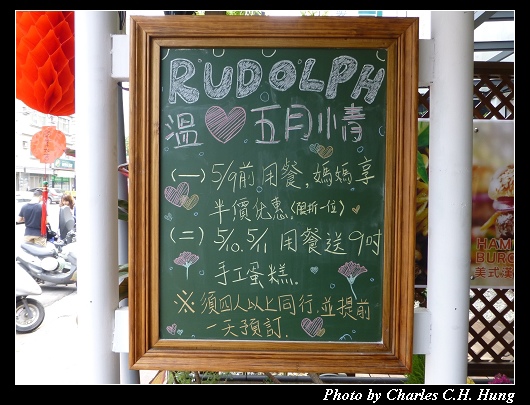 RUDOLPH
溫 五月情
(一) 5/9前用餐,媽媽享
半價优惠,(限折一位)
(二) 5/10.5/11 用餐送9吋
手工蛋糕.
※須四人以上同行.並提前
一天預訂.
HAM
BURG
美式漢
Photo by Charles C.H. Hung